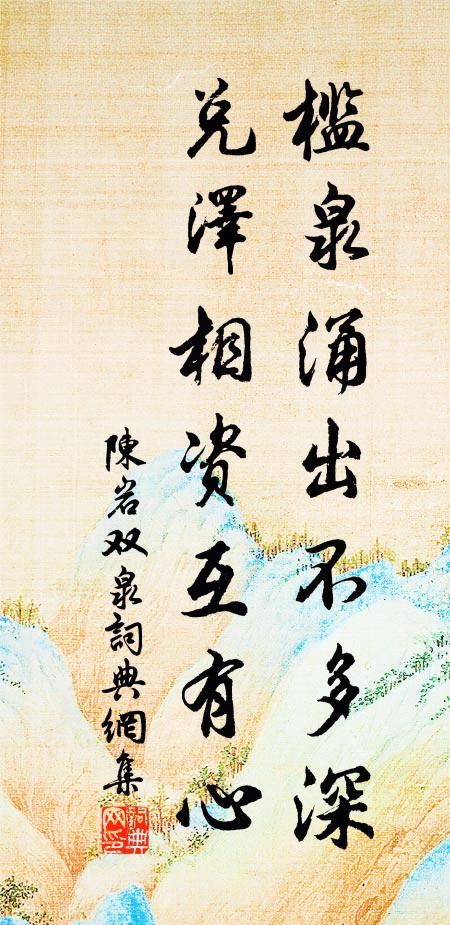 檻泉涌出不多深
兑澤相資互有心
陳岩双泉詞典網集
詞典网印